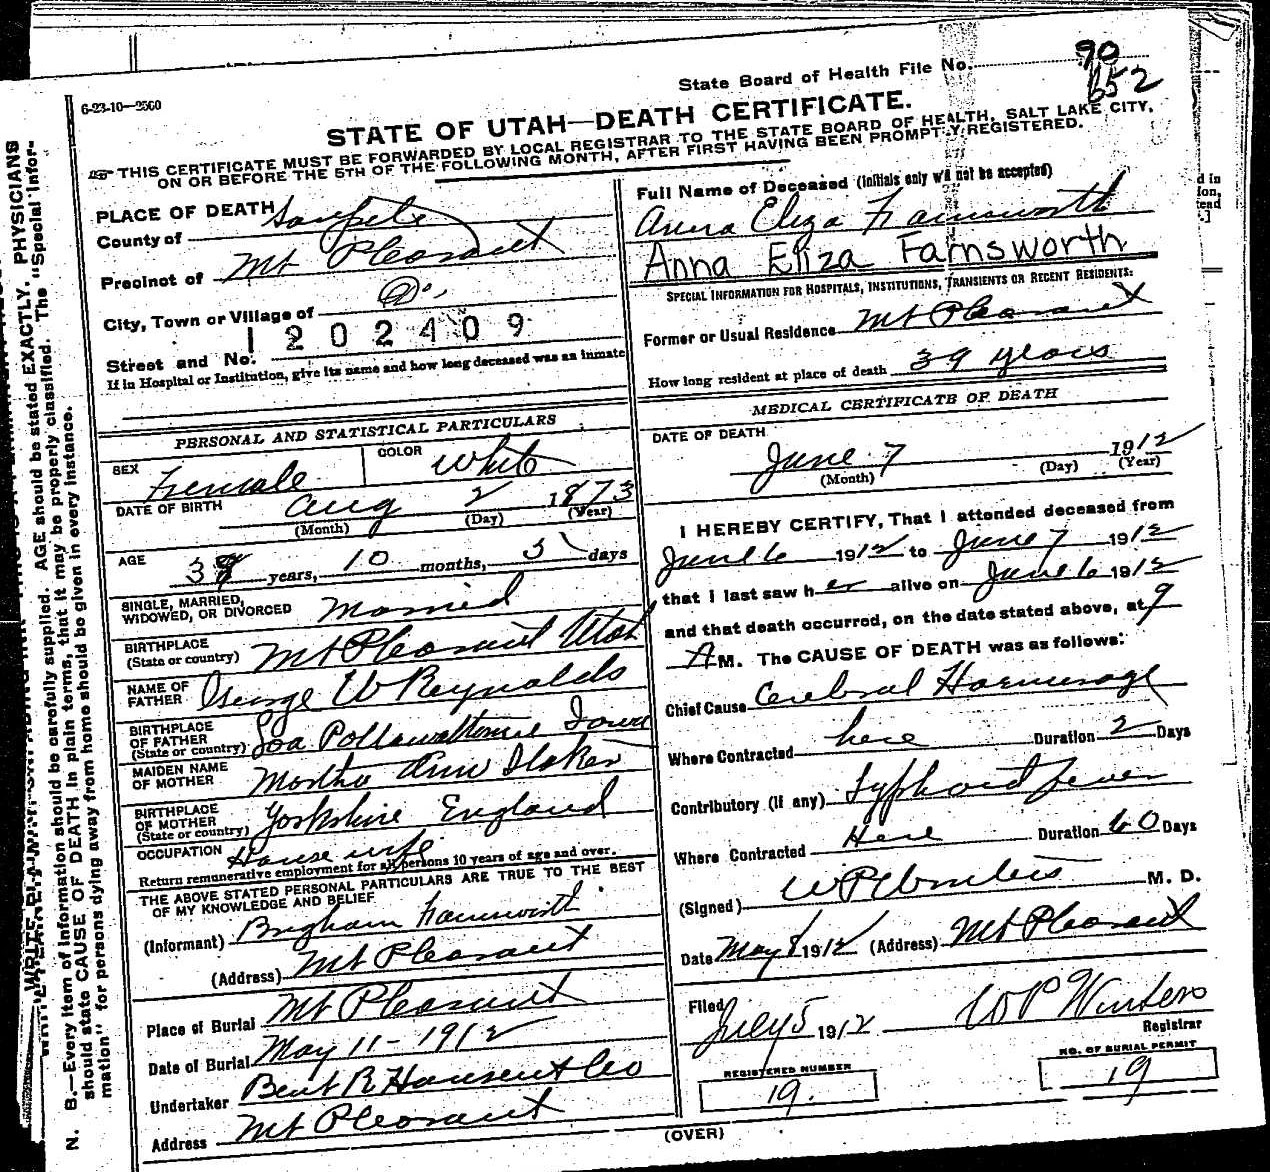 State Board of Health File No. 90
652
6-23-10—2500
STATE OF UTAH—DEATH CERTIFICATE.
THIS CERTIFICATE MUST BE FORWARDED BY LOCAL REGISTRAR TO THE STATE BOARD OF HEALTH, SALT LAKE CITY,
ON OR BEFORE THE 5TH OF THE FOLLOWING MONTH, AFTER FIRST HAVING BEEN PROMPTLY REGISTERED.
PLACE OF DEATH
County of Sanpete
Precinct of Mt Pleasant
City, Town or Village of
1202409
Street and No.
If in Hospital or Institution, give its name and how long deceased was an inmate
PERSONAL AND STATISTICAL PARTICULARS
SEX Female COLOR White
DATE OF BIRTH Aug 2 1873
(Month) (Day) (Year)
AGE 38 years, 10 months, 5 days
SINGLE, MARRIED,
WIDOWED, OR DIVORCED Married
BIRTHPLACE
(State or country) Mt Pleasant Utah
NAME OF
FATHER George W Reynolds
BIRTHPLACE
OF FATHER
(State or country) Pottawattamie Iowa
MAIDEN NAME
OF MOTHER Martha Ann
BIRTHPLACE
OF MOTHER
(State or country) Yorkshire England
OCCUPATION House wife
Return remunerative employment for all persons 10 years of age and over.
THE ABOVE STATED PERSONAL PARTICULARS ARE TRUE TO THE BEST
OF MY KNOWLEDGE AND BELIEF
(Informant) Brigham Farnsworth
(Address) Mt Pleasant
Place of Burial Mt Pleasant
Date of Burial May 11-1912
Undertaker Bent R Hansen & Co
Address Mt Pleasant
Full Name of Deceased (Initials only will not be accepted)
Anna Eliza Farnsworth
Anna Eliza Farnsworth
SPECIAL INFORMATION FOR HOSPITALS, INSTITUTIONS, TRANSIENTS OR RECENT RESIDENTS:
Former or Usual Residence Mt Pleasant
How long resident at place of death 39 years
MEDICAL CERTIFICATE OF DEATH
DATE OF DEATH
June 7 1912
(Month) (Day) (Year)
I HEREBY CERTIFY, That I attended deceased from
June 6 1912 to June 7 1912
that I last saw her alive on June 6 1912
and that death occurred, on the date stated above, at 9
A M. The CAUSE OF DEATH was as follows:
Chief Cause Cerebral Haemorage
Where Contracted here Duration 2 Days
Contributory (if any) Typhoid fever
Where Contracted Here Duration 60 Days
(Signed) W P Winters M. D.
Date May 8 1912 (Address) Mt Pleasant
Filed July 5 1912 W P Winters
Registrar
REGISTERED NUMBER
19.
NO. OF BURIAL PERMIT
19
(OVER)
N. B.—Every item of information should be carefully supplied. AGE should be stated EXACTLY. PHYSICIANS
should state CAUSE OF DEATH in plain terms, that it may be properly classified. The "Special Infor-
mation" for persons dying away from home should be given in every instance.